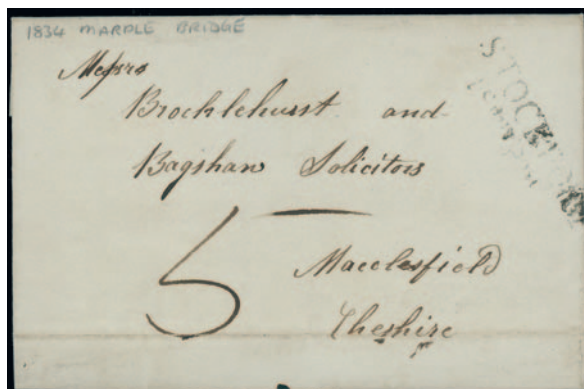 1834 MARPLE BRIDGE
Messrs
Brocklehurst and
Bagshaw Solicitors
5
Macclesfield
Cheshire
STOCKPORT